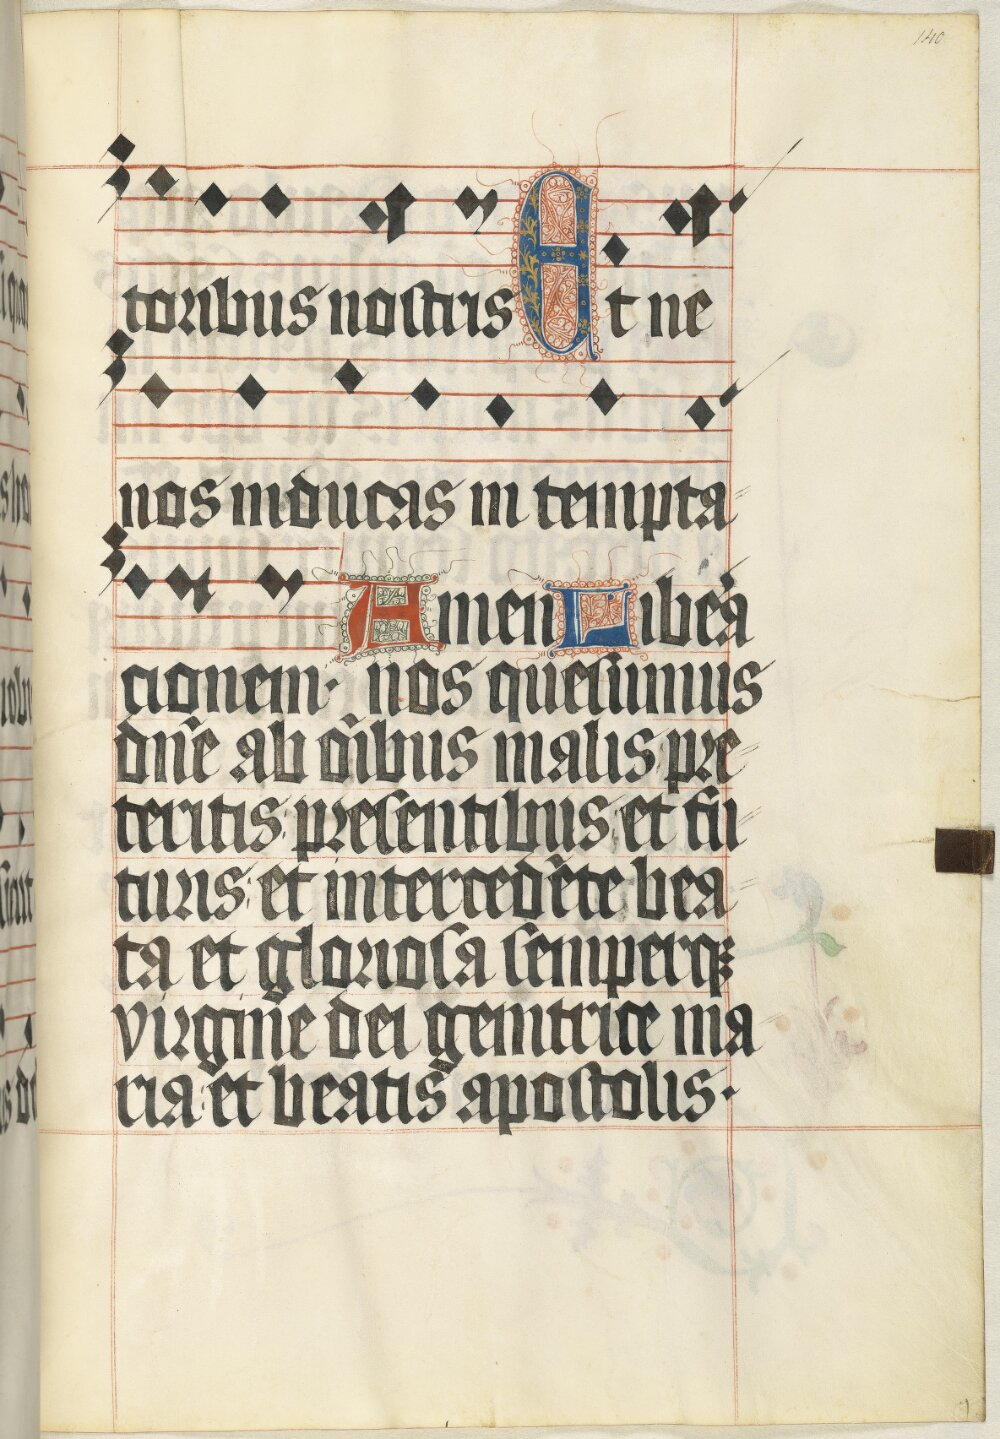 140
toribus nostris Et ne
nos inducas in tempta
Amen Libera
cionem· nos quesumus
dn̄e ab oı̄bus malis pre
teritis presentibus et fu
turis et interced̄te bea
ta et gloriosa semperqꝫ
virgine dei genitrice ma
ria et beatis apostolis·